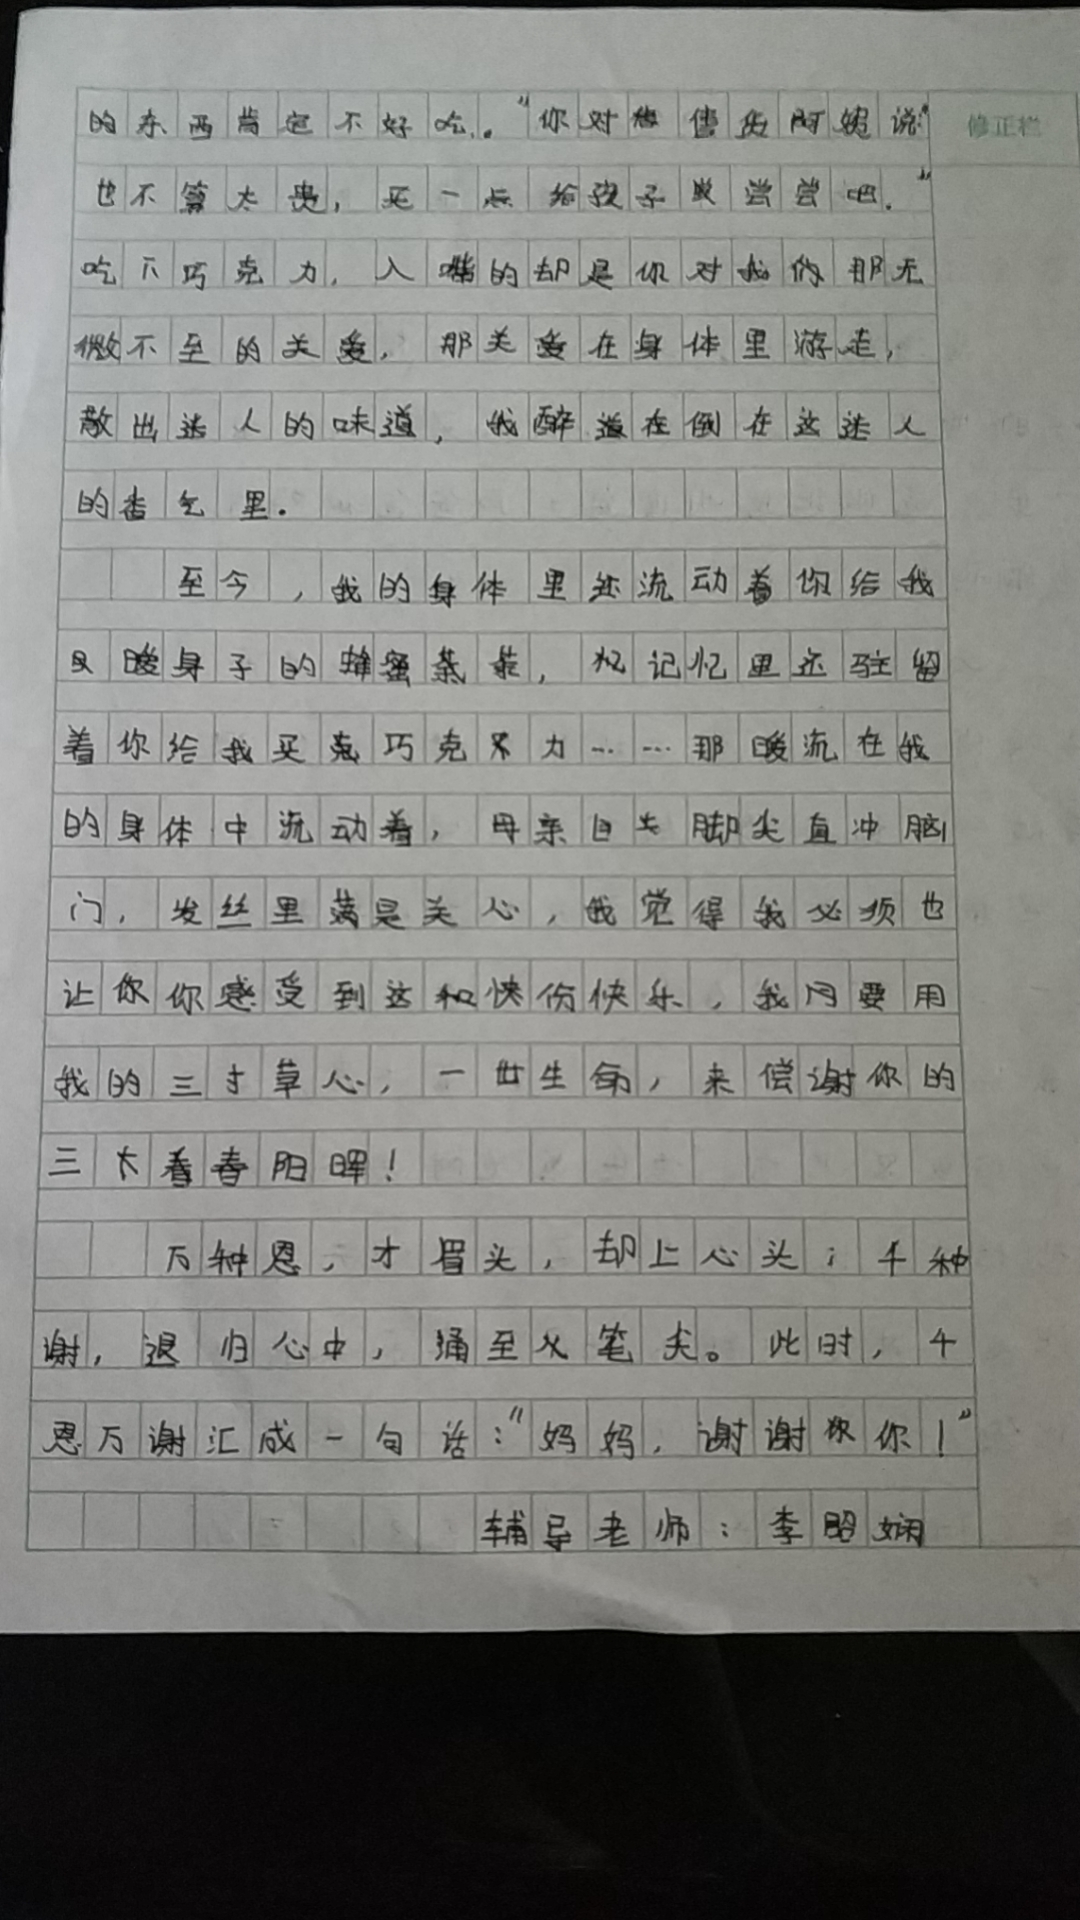 的东西肯定不好吃。”你对售货阿姨说:“
修正栏
也不算太贵,买一点给孩子尝尝吧.”
吃下巧克力,入嘴的却是你对我的那无
微不至的关爱,那关爱在身体里游走,
散出迷人的味道,我醉倒在这迷人
的香气里.
至今,我的身体里还流动着你给我
暖身子的蜂蜜茶,记忆里还驻留
着你给我买巧克力……那暖流在我
的身体中流动着,母亲脚尖直冲脑
门,发丝里满是关心,我觉得我必须也
让你感受到这份快乐,我要用
我的三寸草心,一世生命,来偿谢你的
三春阳晖!
万种恩,才眉头,却上心头;千种
谢,退归心中,涌至笔尖。此时,千
恩万谢汇成一句话:“妈妈,谢谢你!”
辅导老师:李昭娴